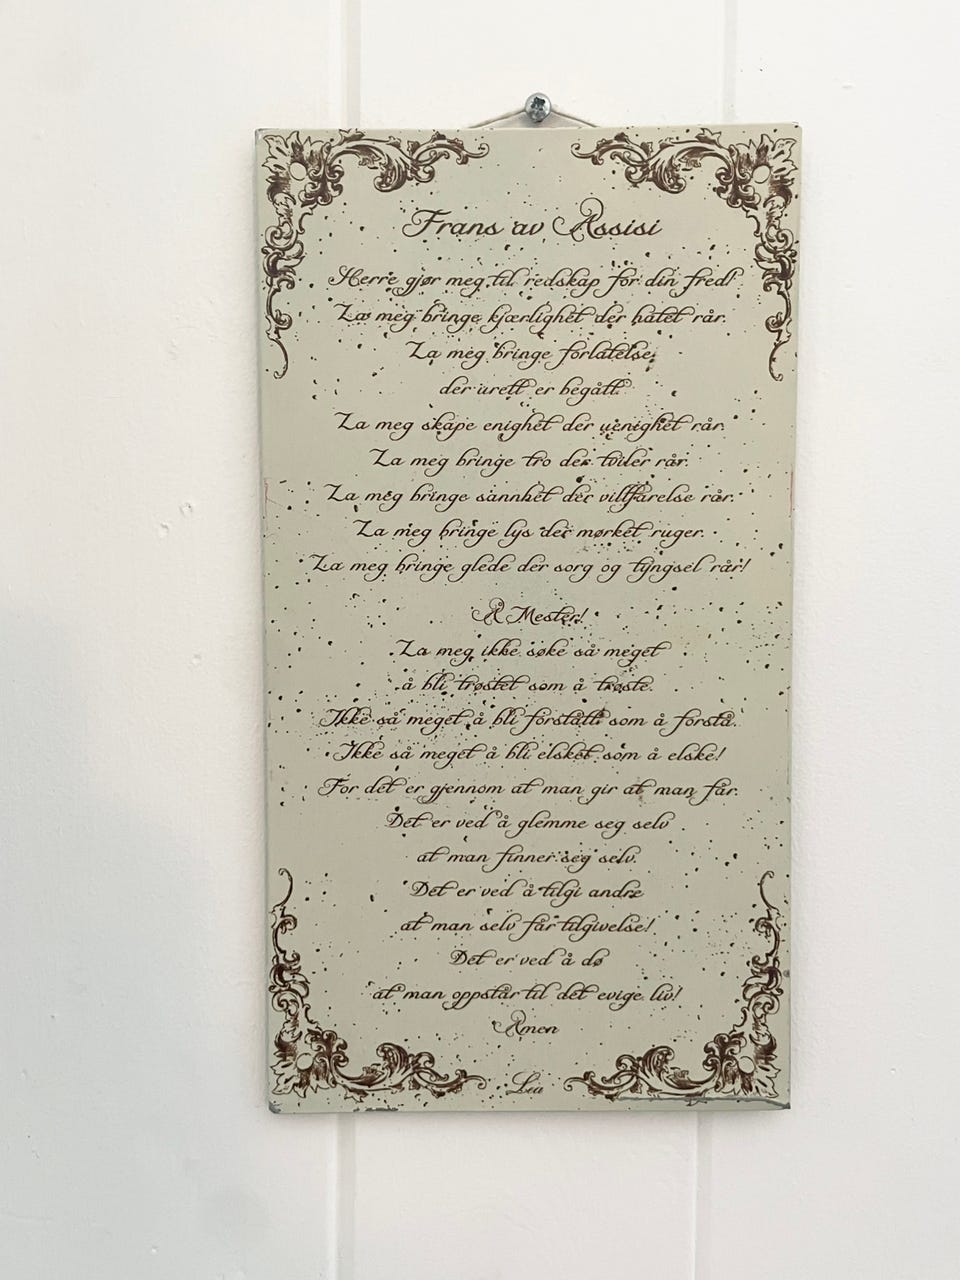 Frans av Assisi
Herre gjør meg til redskap for din fred!
La meg bringe kjærlighet der hatet rår.
La meg bringe forlatelse,
der urett er begått.
La meg skape enighet der uenighet rår.
La meg bringe tro der tviler rår.
La meg bringe sannhet der villfarelse rår.
La meg bringe lys der mørket ruger.
La meg bringe glede der sorg og tyngsel rår!
Å Mester!
La meg ikke søke så meget
å bli trøstet som å trøste.
Ikke så meget å bli forstått som å forstå.
Ikke så meget å bli elsket som å elske!
For det er gjennom at man gir at man får.
Det er ved å glemme seg selv
at man finner seg selv.
Det er ved å tilgi andre
at man selv får tilgivelse!
Det er ved å dø
at man oppstår til det evige liv!
Amen
Lea